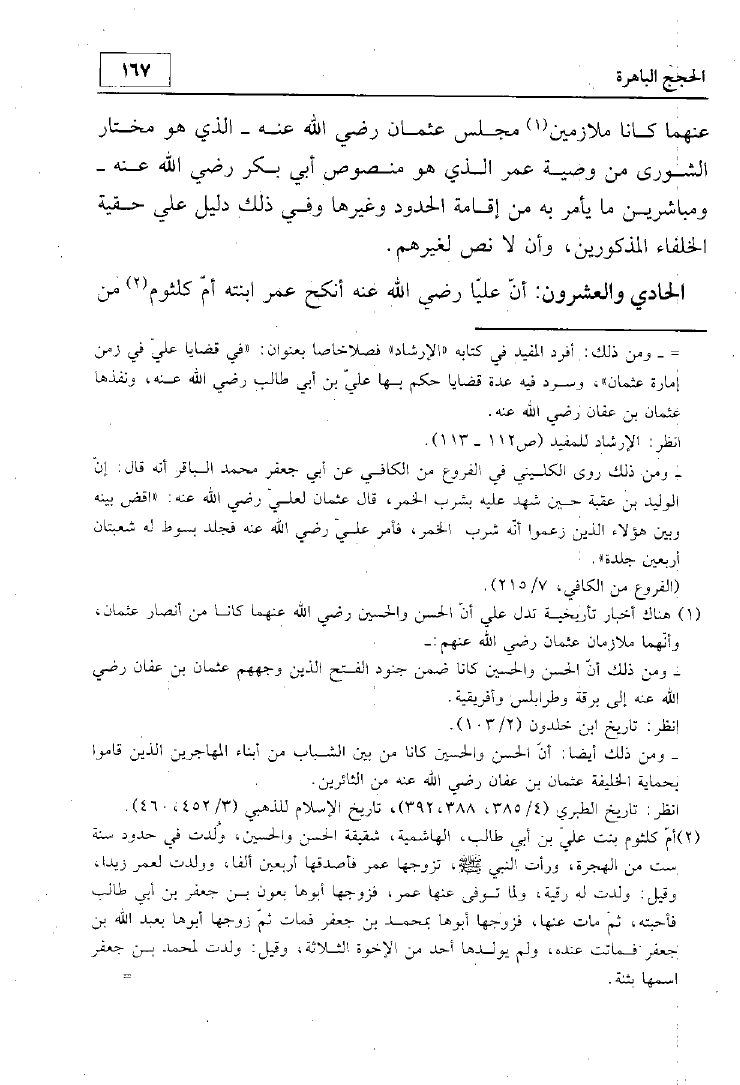 الحجج الباهرة
١٦٧
عنهما كانا ملازمين(١) مجلس عثمان رضي الله عنه ـ الذي هو مختار
الشورى من وصية عمر الذي هو منصوص أبي بكر رضي الله عنه ـ
ومباشرين ما يأمر به من إقامة الحدود وغيرها وفي ذلك دليل علي حقية
الخلفاء المذكورين، وأن لا نص لغيرهم.
الحادي والعشرون: أنّ عليّا رضي الله عنه أنكح عمر ابنته أمّ كلثوم(٢) من
= ـ ومن ذلك: أفرد المفيد في كتابه «الإرشاد» فصلاخاصا بعنوان: «في قضايا عليّ في زمن
إمارة عثمان»، وسرد فيه عدة قضايا حكم بها عليّ بن أبي طالب رضي الله عنه، ونفذها
عثمان بن عفان رضي الله عنه.
انظر: الإرشاد للمفيد (ص١١٢ ـ ١١٣).
ـ ومن ذلك روى الكليني في الفروع من الكافي عن أبي جعفر محمد الباقر أنه قال: إنّ
الوليد بن عقبة حين شهد عليه بشرب الخمر، قال عثمان لعليّ رضي الله عنه: «اقض بينه
وبين هؤلاء الذين زعموا أنّه شرب الخمر، فأمر عليّ رضي الله عنه فجلد بسوط له شعبتان
أربعين جلدة».
(الفروع من الكافي، ٢١٥/٧).
(١) هناك أخبار تأريخية تدل علي أنّ الحسن والحسين رضي الله عنهما كانا من أنصار عثمان،
وأنّهما ملازمان عثمان رضي الله عنهم:ـ
ـ ومن ذلك أنّ الحسن والحسين كانا ضمن جنود الفتح الذين وجههم عثمان بن عفان رضي
الله عنه إلى برقة وطرابلس وأفريقية.
انظر: تاريخ ابن خلدون (١٠٣/٢).
ـ ومن ذلك أيضا: أنّ الحسن والحسين كانا من بين الشباب من أبناء المهاجرين الذين قاموا
بحماية الخليفة عثمان بن عفان رضي الله عنه من الثائرين.
انظر: تاريخ الطبري (٣٨٥/٤، ٣٨٨، ٣٩٢)، تاريخ الإسلام للذهبي (٤٥٢/٣، ٤٦٠).
(٢)أمّ كلثوم بنت عليّ بن أبي طالب، الهاشمية، شقيقة الحسن والحسين، وُلدت في حدود سنة
ست من الهجرة، ورأت النبي ﷺ، تزوجها عمر فأصدقها أربعين ألفا، وولدت لعمر زيدا،
وقيل: ولدت له رقية، ولما توفى عنها عمر، فزوجها أبوها بعون بن جعفر بن أبي طالب
فأحبته، ثمّ مات عنها، فزوجها أبوها بمحمد بن جعفر فمات ثمّ زوجها أبوها بعبد الله بن
جعفر فماتت عنده، ولم يولدها أحد من الإخوة الثلاثة، وقيل: ولدت لمحمد بن جعفر
اسمها بثنة.
=